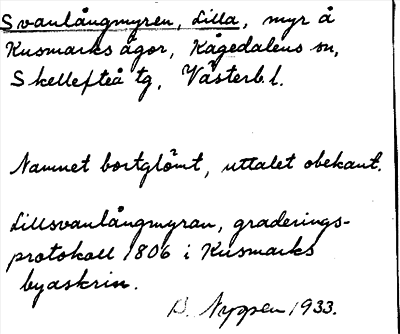 Svanlångmyren, Lilla, myr å
Kusmarks ägor, Kågedalens sn,
Skellefteå tg, Västerb. l.
Namnet bortglömt, uttalet obekant.
Lillsvanlångmyran, graderings-
protokoll 1806 i Kusmarks
byaskrin.
B. Nygren 1933.